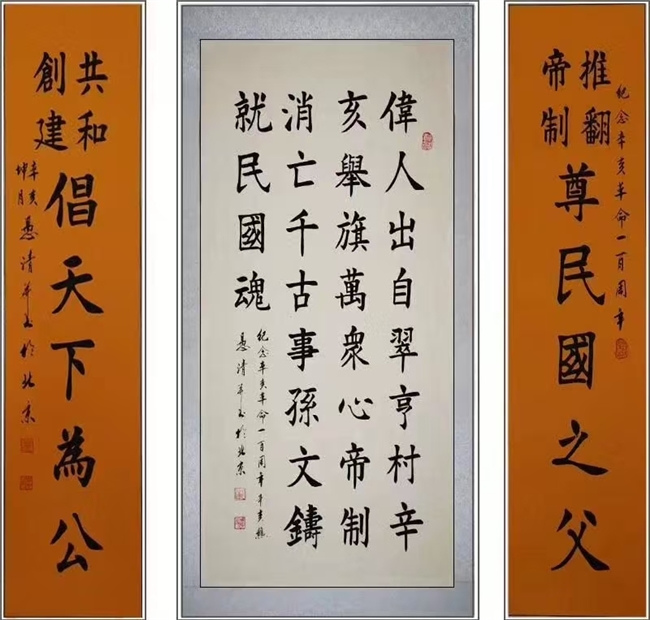 纪念辛亥革命一百周年
推翻
帝制
尊民國之父
偉人出自翠亨村辛
亥舉旗萬衆心帝制
消亡千古事孫文鑄
就民國魂
纪念辛亥革命一百周年辛亥
清书於北京
共和
創建
倡天下為公
辛亥
坤月
清书於北京